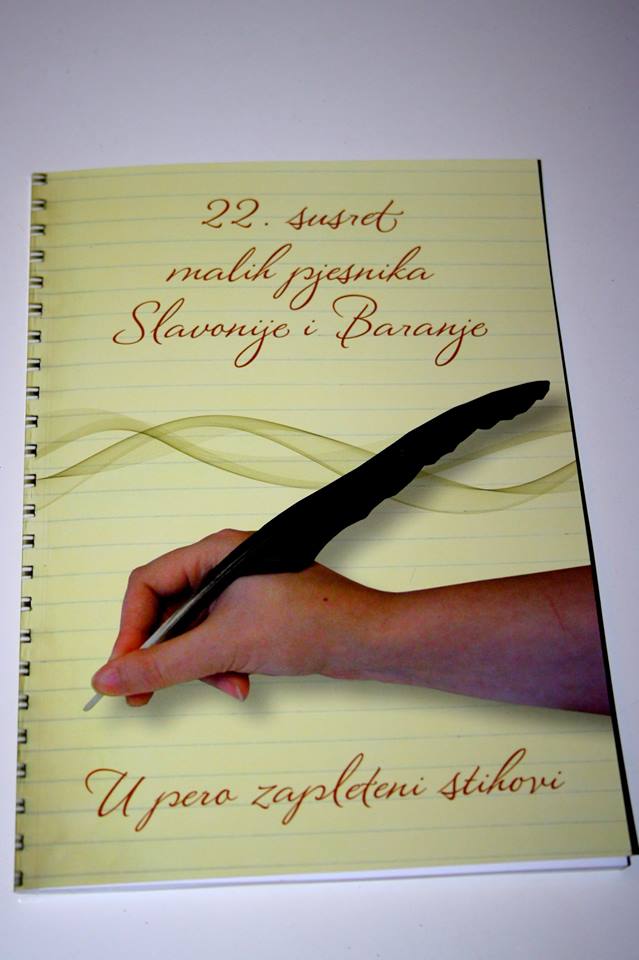 22. susret
malih pjesnika
Slavonije i Baranje
U pero zapleteni stihovi